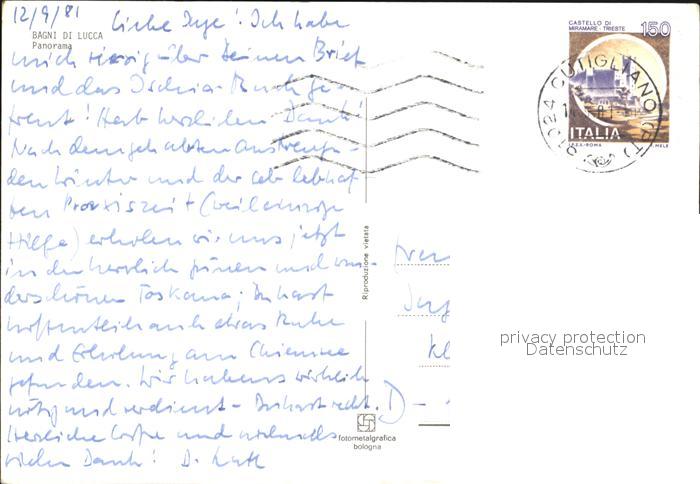 12/9/81 Liebe Inge! Ich habe
BAGNI DI LUCCA
Panorama
mich riesig über Deinen Brief
und das Ischia-Buch ge-
freut! Hab herzlichen Dank!
Nach dem gehabten anstrengen-
den Winter und der sehr lebhaf-
ten Praxiszeit (
Hilfe) erholen wir uns jetzt
in der herrlich grünen und wun-
derschönen Toskana; Du hast
hoffentlich auch etwas Ruhe
und Erholung am Chiemsee
gefunden. Wir haben's wirklich
nötig und verdient - Du hast recht.
Herzliche Grüße und nochmals
vielen Dank! D.
CASTELLO DI
MIRAMARE - TRIESTE
150
ITALIA
I.P.Z.S.-ROMA
E. MELE
51024 CUTIGLIANO (PT)
Riproduzione vietata
Frau
Ing
Kl
D-
fotometalgrafica
bologna
privacy protection
Datenschutz